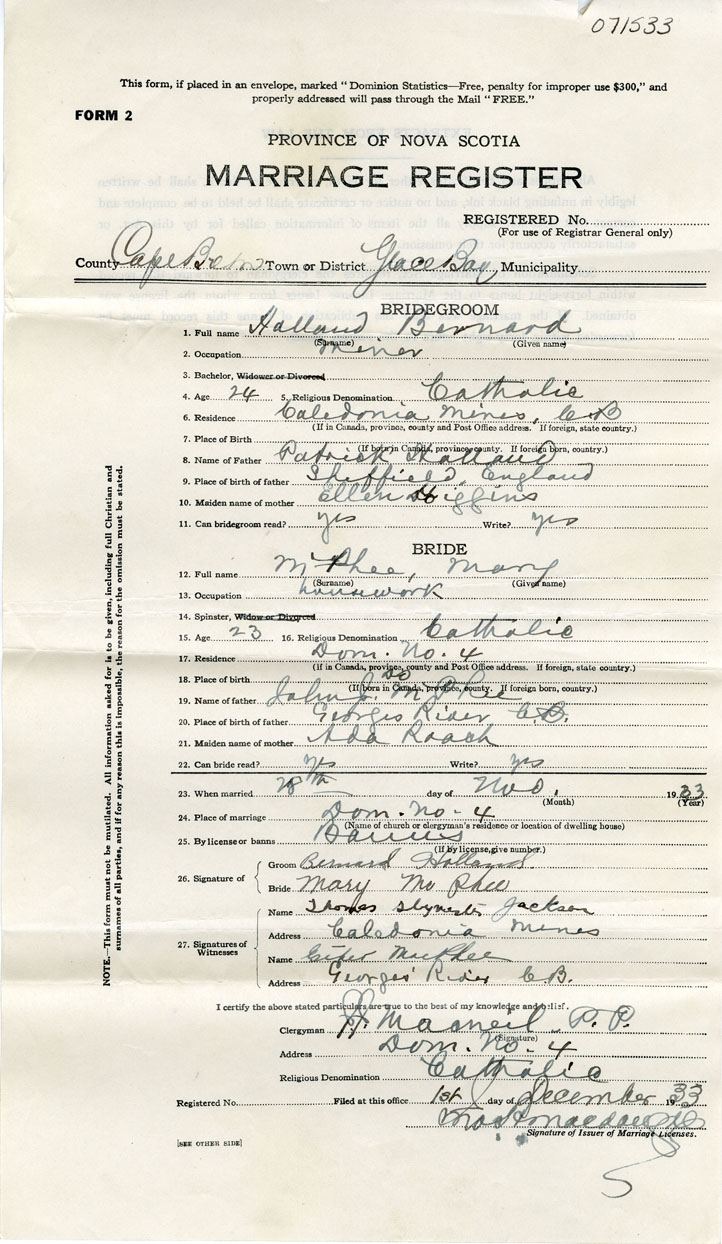 071533
This form, if placed in an envelope, marked "Dominion Statistics—Free, penalty for improper use $300," and
properly addressed will pass through the Mail "FREE."
FORM 2
PROVINCE OF NOVA SCOTIA
MARRIAGE REGISTER
REGISTERED No.
(For use of Registrar General only)
County Cape Breton Town or District Glace Bay, Municipality
BRIDEGROOM
1. Full name Holland Bernard
(Surname) (Given name)
2. Occupation Miner
3. Bachelor, Widower or Divorced
4. Age 24 5. Religious Denomination Catholic
6. Residence Caledonia Mines, C.B
(If in Canada, province, county and Post Office address. If foreign, state country.)
7. Place of Birth
(If born in Canada, province, county. If foreign born, country.)
8. Name of Father Patrick Holland
9. Place of birth of father Sheffield, England
10. Maiden name of mother Ellen Higgins
11. Can bridegroom read? yes Write? yes
BRIDE
12. Full name McPhee, Mary
(Surname) (Given name)
13. Occupation housework
14. Spinster, Widow or Divorced
15. Age 23 16. Religious Denomination Catholic
17. Residence Dom. No. 4
(If in Canada, province, county and Post Office address. If foreign, state country.)
18. Place of birth Do
(If born in Canada, province, county. If foreign born, country.)
19. Name of father John J. McPhee
20. Place of birth of father Georges River C.B.
21. Maiden name of mother Ada Roach
22. Can bride read? yes Write? yes
23. When married 28th day of Nov. 1933
(Month) (Year)
24. Place of marriage Dom. No. 4
(Name of church or clergyman's residence or location of dwelling house)
25. By license or banns Banns
(If by license, give number.)
26. Signature of Groom Bernard Holland
Bride Mary McPhee
27. Signatures of Witnesses
Name Thomas Slyvester Jackson
Address Caledonia Mines
Name McPhee
Address Georges River C.B.
I certify the above stated particulars are true to the best of my knowledge and belief.
Clergyman MacNeil P.P.
(Signature)
Address Dom. No. 4
Religious Denomination Catholic
Registered No. Filed at this office 1st day of December 1933
Signature of Issuer of Marriage Licenses.
[SEE OTHER SIDE]
NOTE.—This form must not be mutilated. All information asked for is to be given, including full Christian and
surnames of all parties, and if for any reason this is impossible, the reason for the omission must be stated.